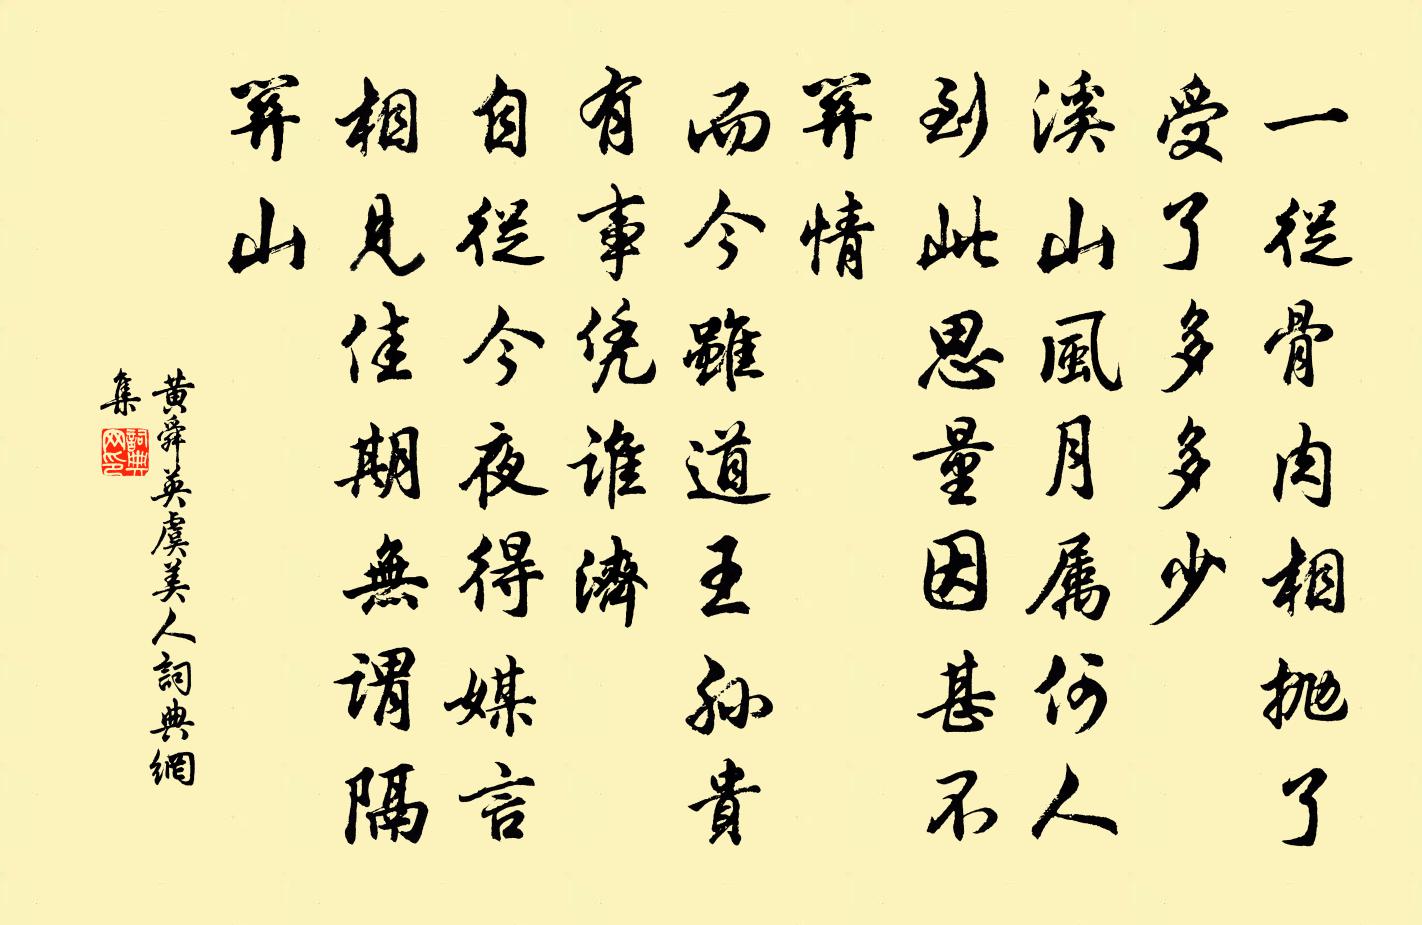 一從骨肉相拋了
受了多多少
溪山風月属何人
到此思量因甚不
關情
而今雖道王孫貴
有事凭誰濟
自從今夜得媒言
相見佳期無謂隔
關山
黃舜英虞美人詞典網
集
詞典网印